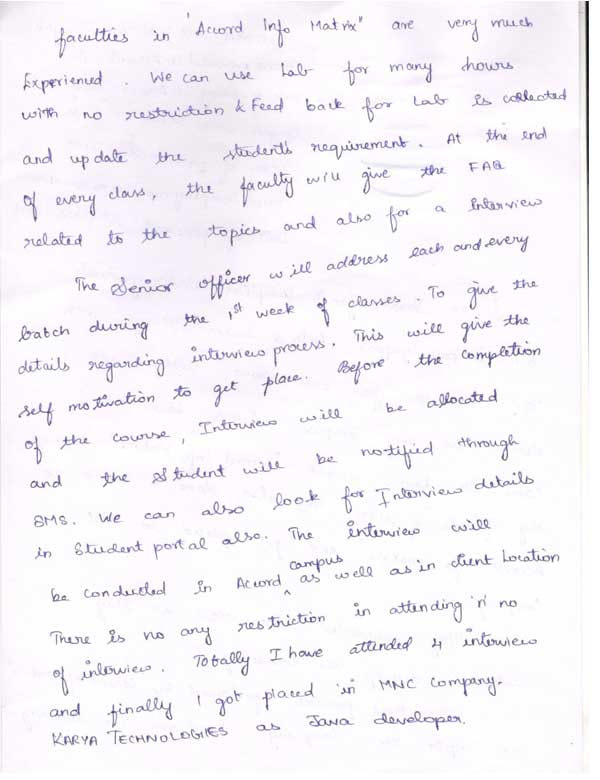 faculties in "Accord Info Matrix" are very much
Experienced. We can use Lab for many hours
with no restriction & Feed back for Lab is collected
and update the student's requirement. At the end
of every class, the faculty will give the FAQ
related to the topics and also for a interview
The Senior officer will address each and every
batch during the 1st week of classes. To give the
details regarding interview process. This will give the
self motivation to get place. Before the completion
of the course, Interview will be allocated
and the student will be notified through
SMS. We can also look for Interview details
in Student portal also. The interview will
be conducted in Accord campus as well as in client Location
There is no any restriction in attending 'n' no
of interview. Totally I have attended 4 interview
and finally I got placed in MNC Company.
KARYA TECHNOLOGIES as Java developer.